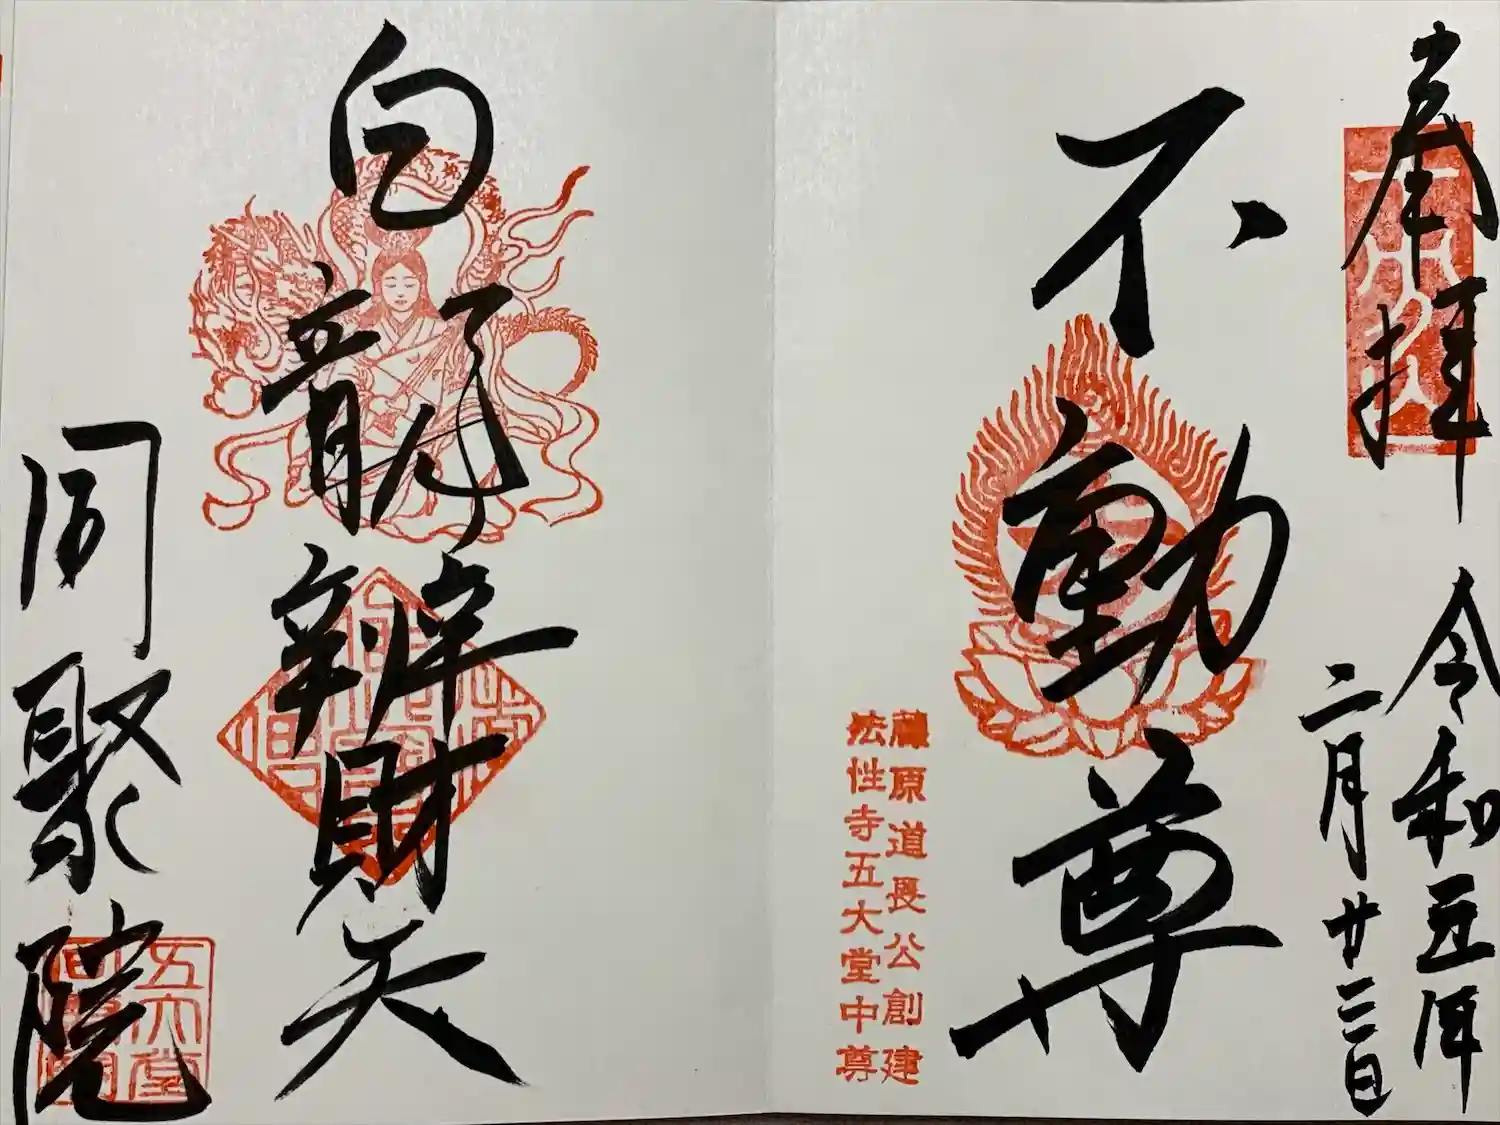 奉拝
令和五年
二月廿三日
不動尊
藤原道長公創建
法性寺五大堂中尊
白龍辨財天
五大堂
同聚院